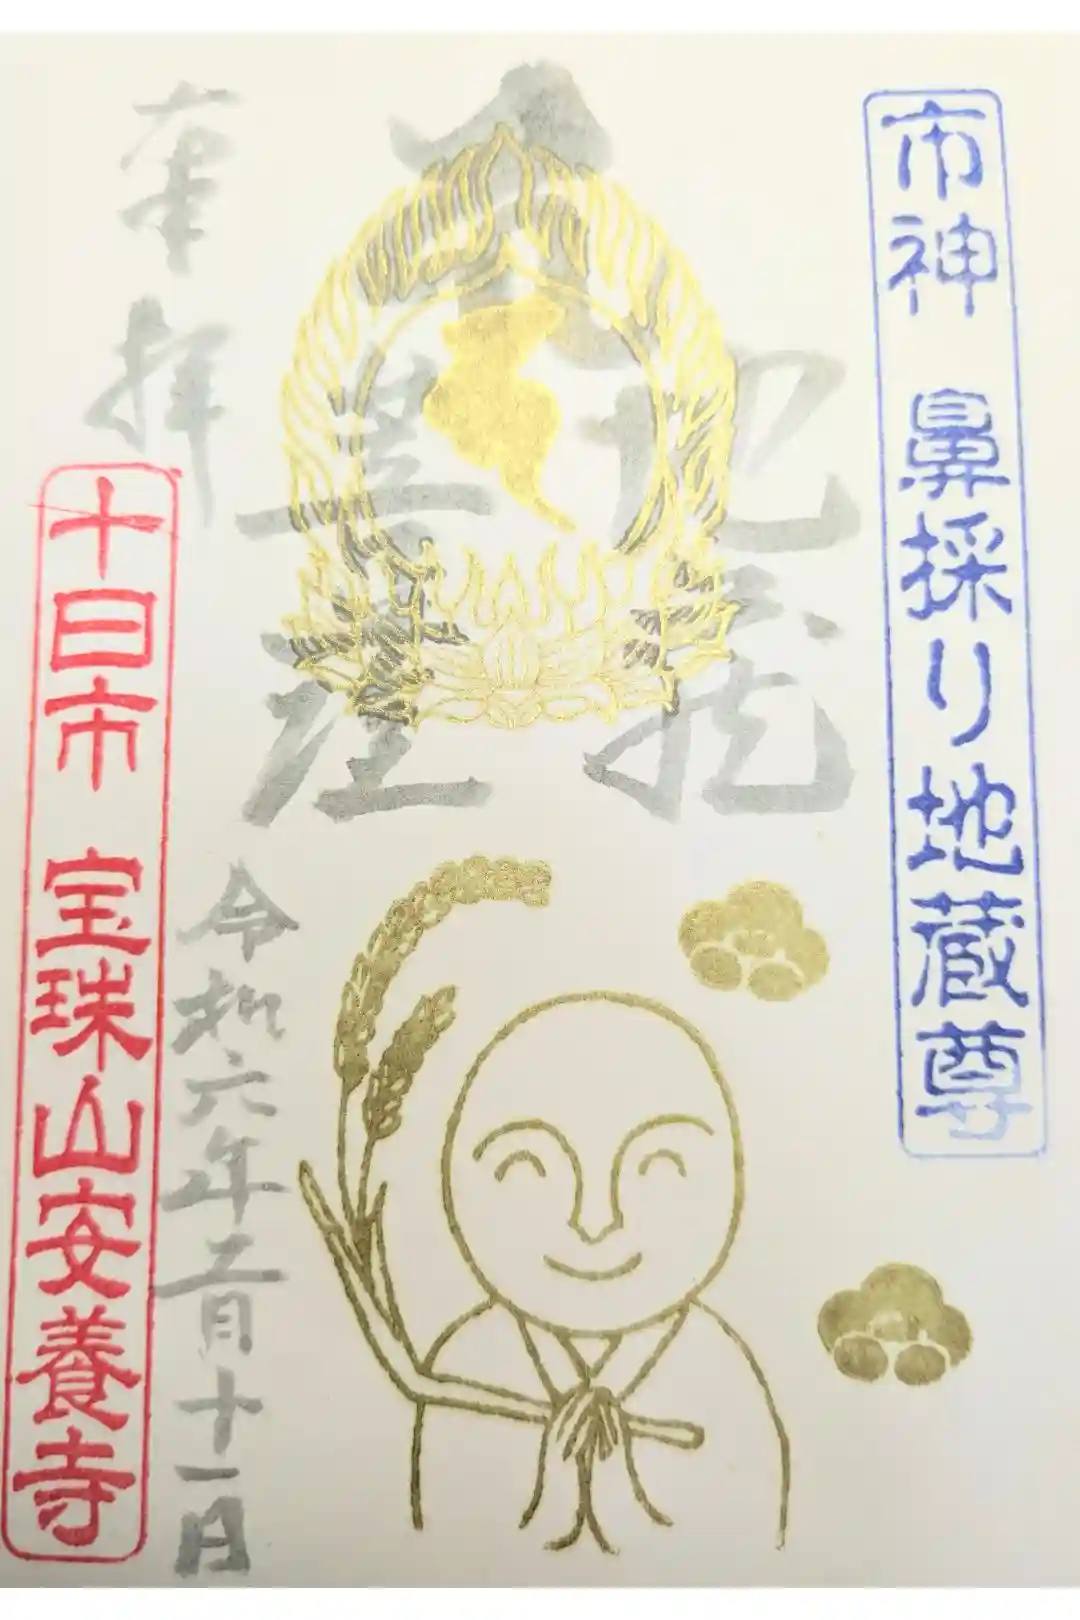 市神 鼻採り地蔵尊
奉拝
十日市 宝珠山安養寺
令和六年二月十一日